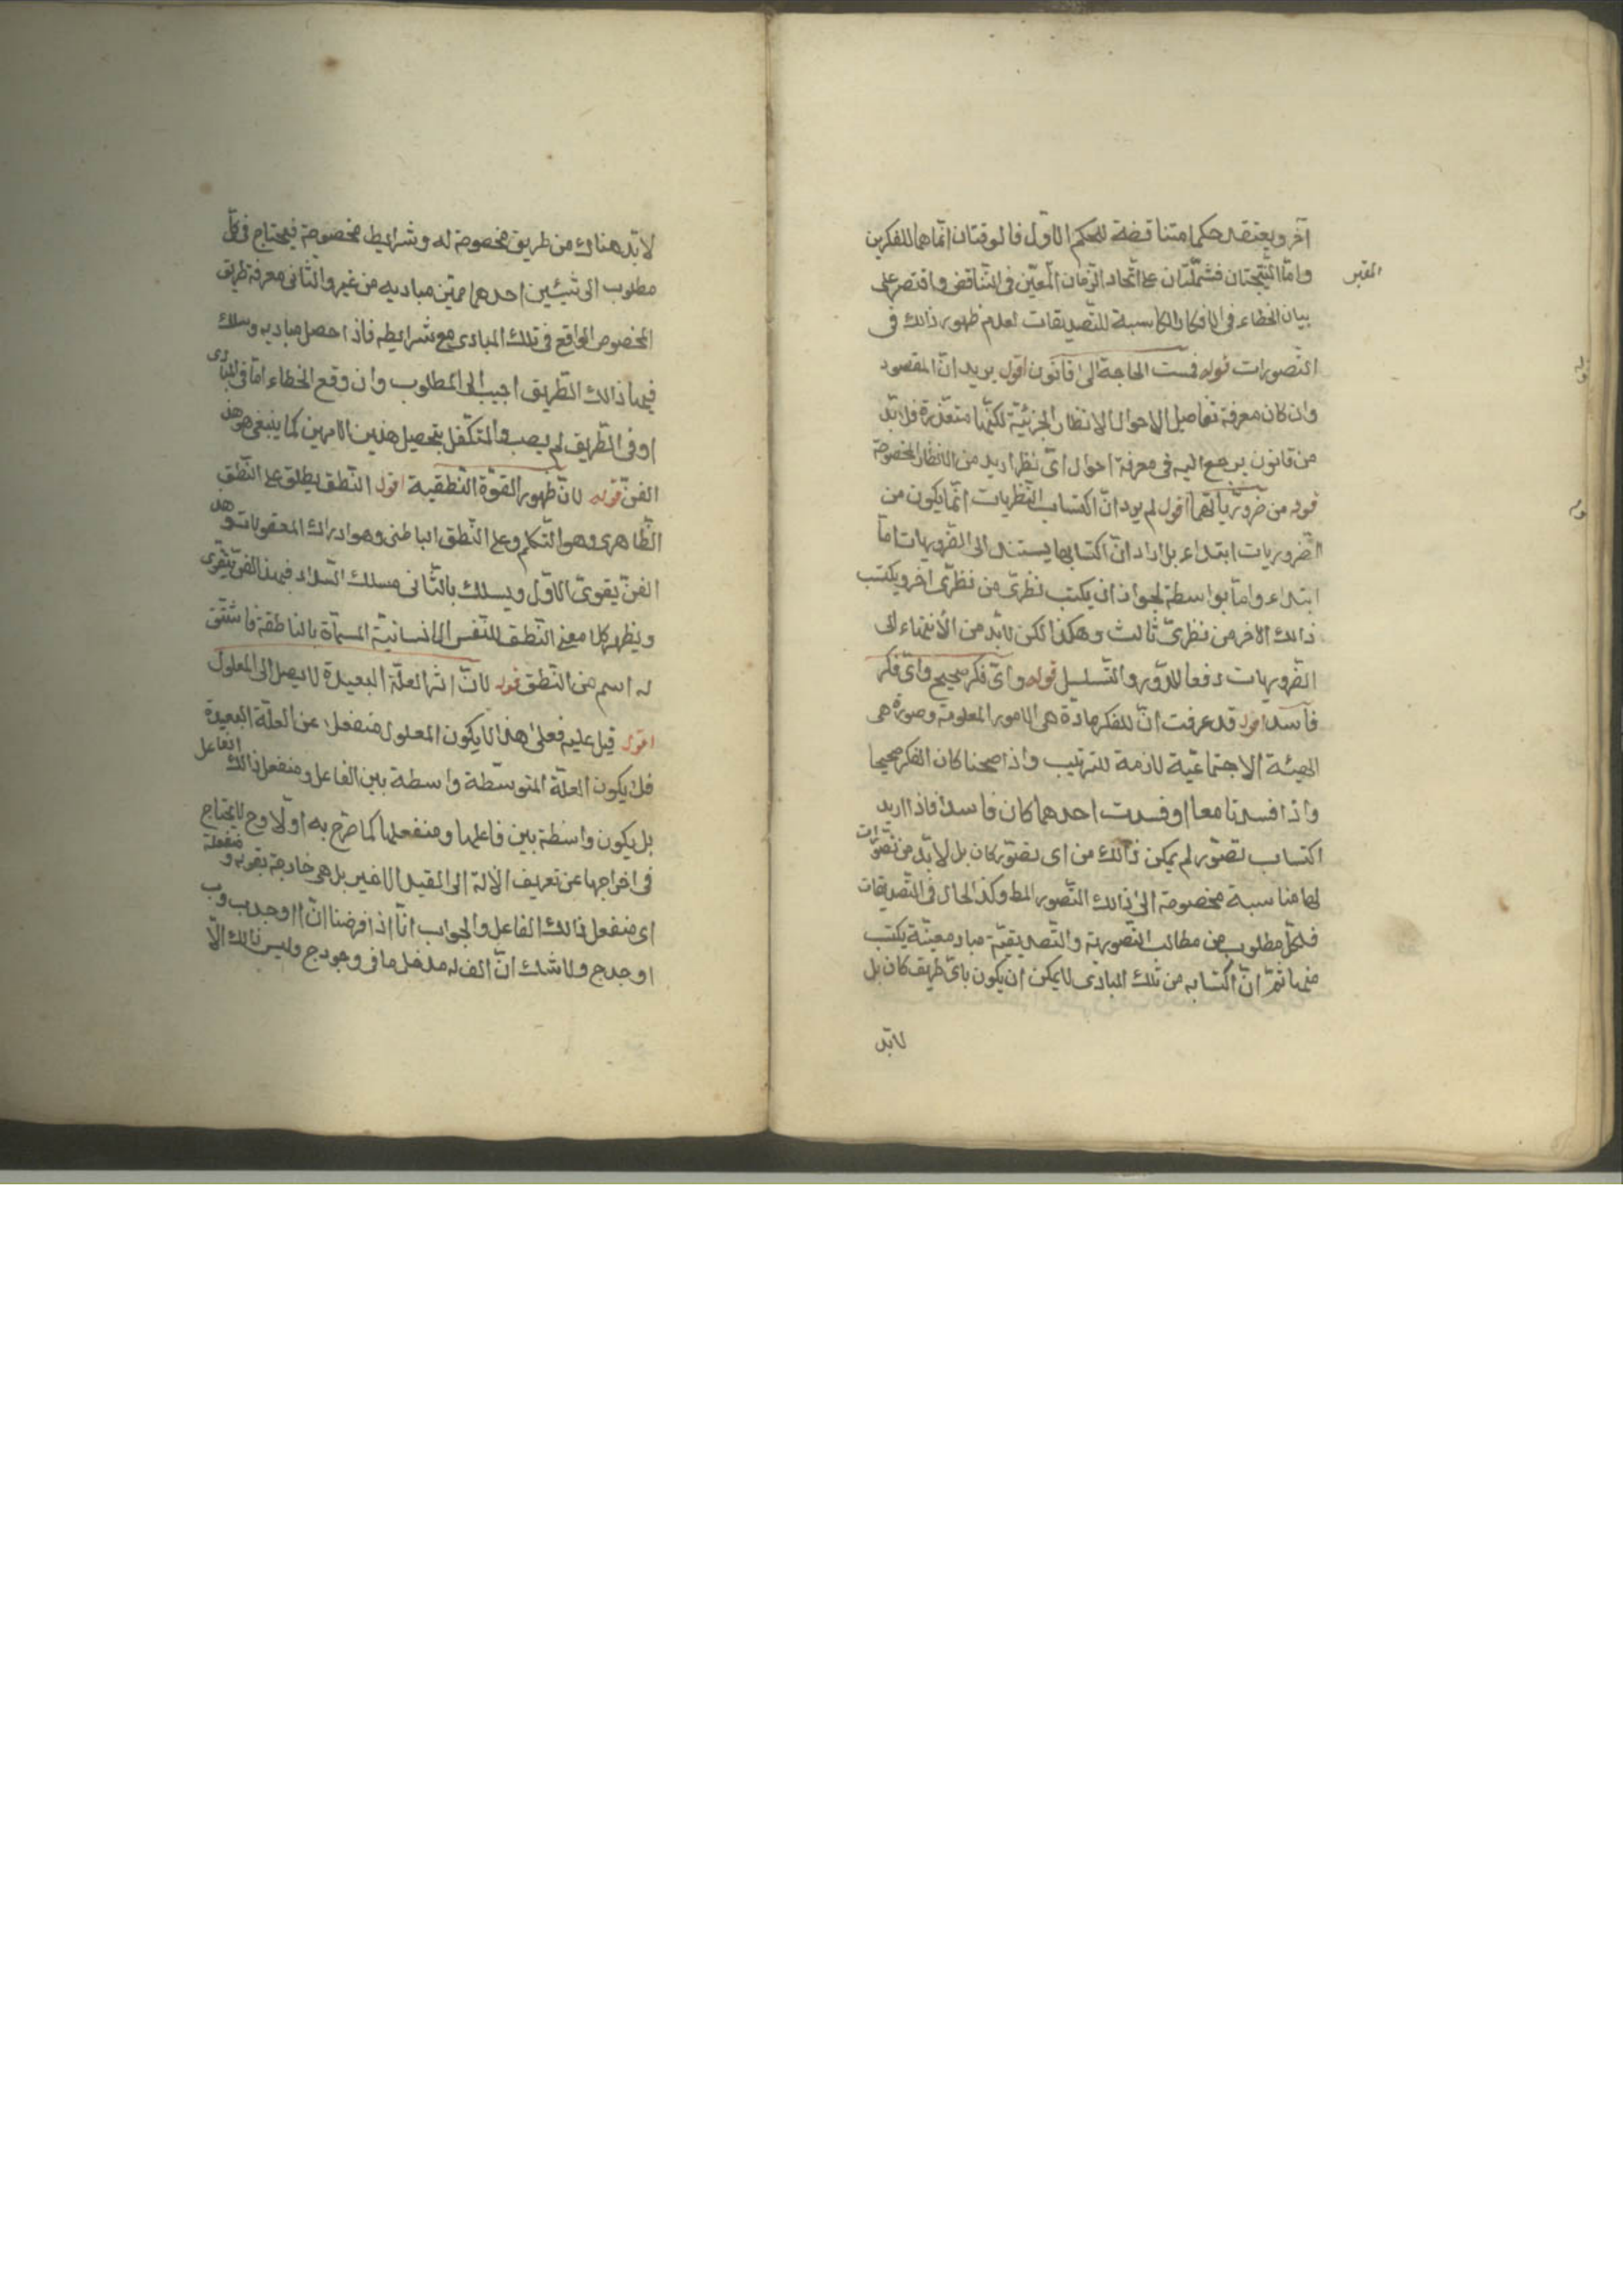 آخر ويعتقد حكما متناقضة للحكم الاول فالوقتان انما هما للفكرين
واما النتيجتان فمشتملتان على اتحاد الزمان المعين فى التناقض واقتصر على
المعتبر
بيان الخطاء فى الافكار الكاسبة للتصديقات لعدم ظهور ذالك فى
التصورات قوله فمست الحاجة الى قانون اقول يريد ان المقصود
وان كان معرفة تفاصيل الاحوال الانظار الجزئية لكنها متعذرة فلا بد
من قانون يرجع اليه فى معرفة احوال اى نظر اريد من الانظار المخصوصة
قوله من ضرورياتهما اقول لم يرد ان اكتساب النظريات انما يكون من
الضروريات ابتداء بل اراد ان اكتسابها يستند الى الضروريات اما
ابتداء واما بواسطة لجواز ان يكتسب نظرى من نظرى اخر ويكتسب
ذالك الاخر من نظرى ثالث وهكذا لكن لابد من الانتهاء الى
الضروريات دفعا للدور والتسلسل قوله واى فكر صحيح واى فكر
فاسد اقول قد عرفت ان للفكر مادة هى الامور المعلومة وصورة هى
الهيئة الاجتماعية لازمة للترتيب واذا صحتا كان الفكر صحيحا
واذا فسدتا معا او فسدت احدهما كان فاسدا فاذا اريد
اكتساب تصور لم يمكن ذالك من اى تصور كان بل لابد من تصورات
لها مناسبة مخصوصة الى ذالك التصور المط وكذا الحال فى التصديقات
فلكل مطلوب من مطالب التصورية والتصديقية مباد معينة يكتسب
منها ثم ان اكتسابه من تلك المبادى لا يمكن ان يكون باى طريق كان بل
لابد
لابد هناك من طريق مخصوصة له وشرايط مخصوصة فيحتاج فى كل
مطلوب الى شيئين احدهما مميز مباديه من غير والثانى معرفة طريق
المخصوص الواقع فى تلك المبادى مع شرائطه فاذا حصل مباديه وسلك
فيها ذالك الطريق اجيب الى المطلوب وان وقع الخطاء اما فى المبادى
او فى الطريق لم يصب والمتكفل بتحصيل هذين الامرين كما ينبغى هو هذا
الفن قوله لان ظهور القوة النطقية اقول النطق يطلق على النطق
الظاهرى وهو التكلم وعلى النطق الباطنى وهو ادراك المعقولات وهذا
الفن يقوى الاول ويسلك بالثانى مسلك السداد فبهذا الفن يتقوى
ويظهر كلا معنى النطق للنفس الانسانية المسماة بالناطقة فاشتق
له اسم من النطق قوله لان اثر العلة البعيدة لا يصل الى المعلول
اقول قيل عليه فعلى هذا لا يكون المعلول منفعلا عن العلة البعيدة
فلا يكون العلة المتوسطة واسطة بين الفاعل ومنفعل ذالك الفاعل
بل يكون واسطة بين فاعلها ومنفعلها كما صرح به اولا وح لا يحتاج
فى اخراجها عن تعريف الآلة الى القيد الاخير بل هى خارجة بقوله ومنفعله
اى منفعل ذالك الفاعل والجواب انا اذا فرضنا ان ا اوجد ب وب
اوجد ج ولا شك ان الف له مدخل ما فى وجود ج وليس ذالك الا